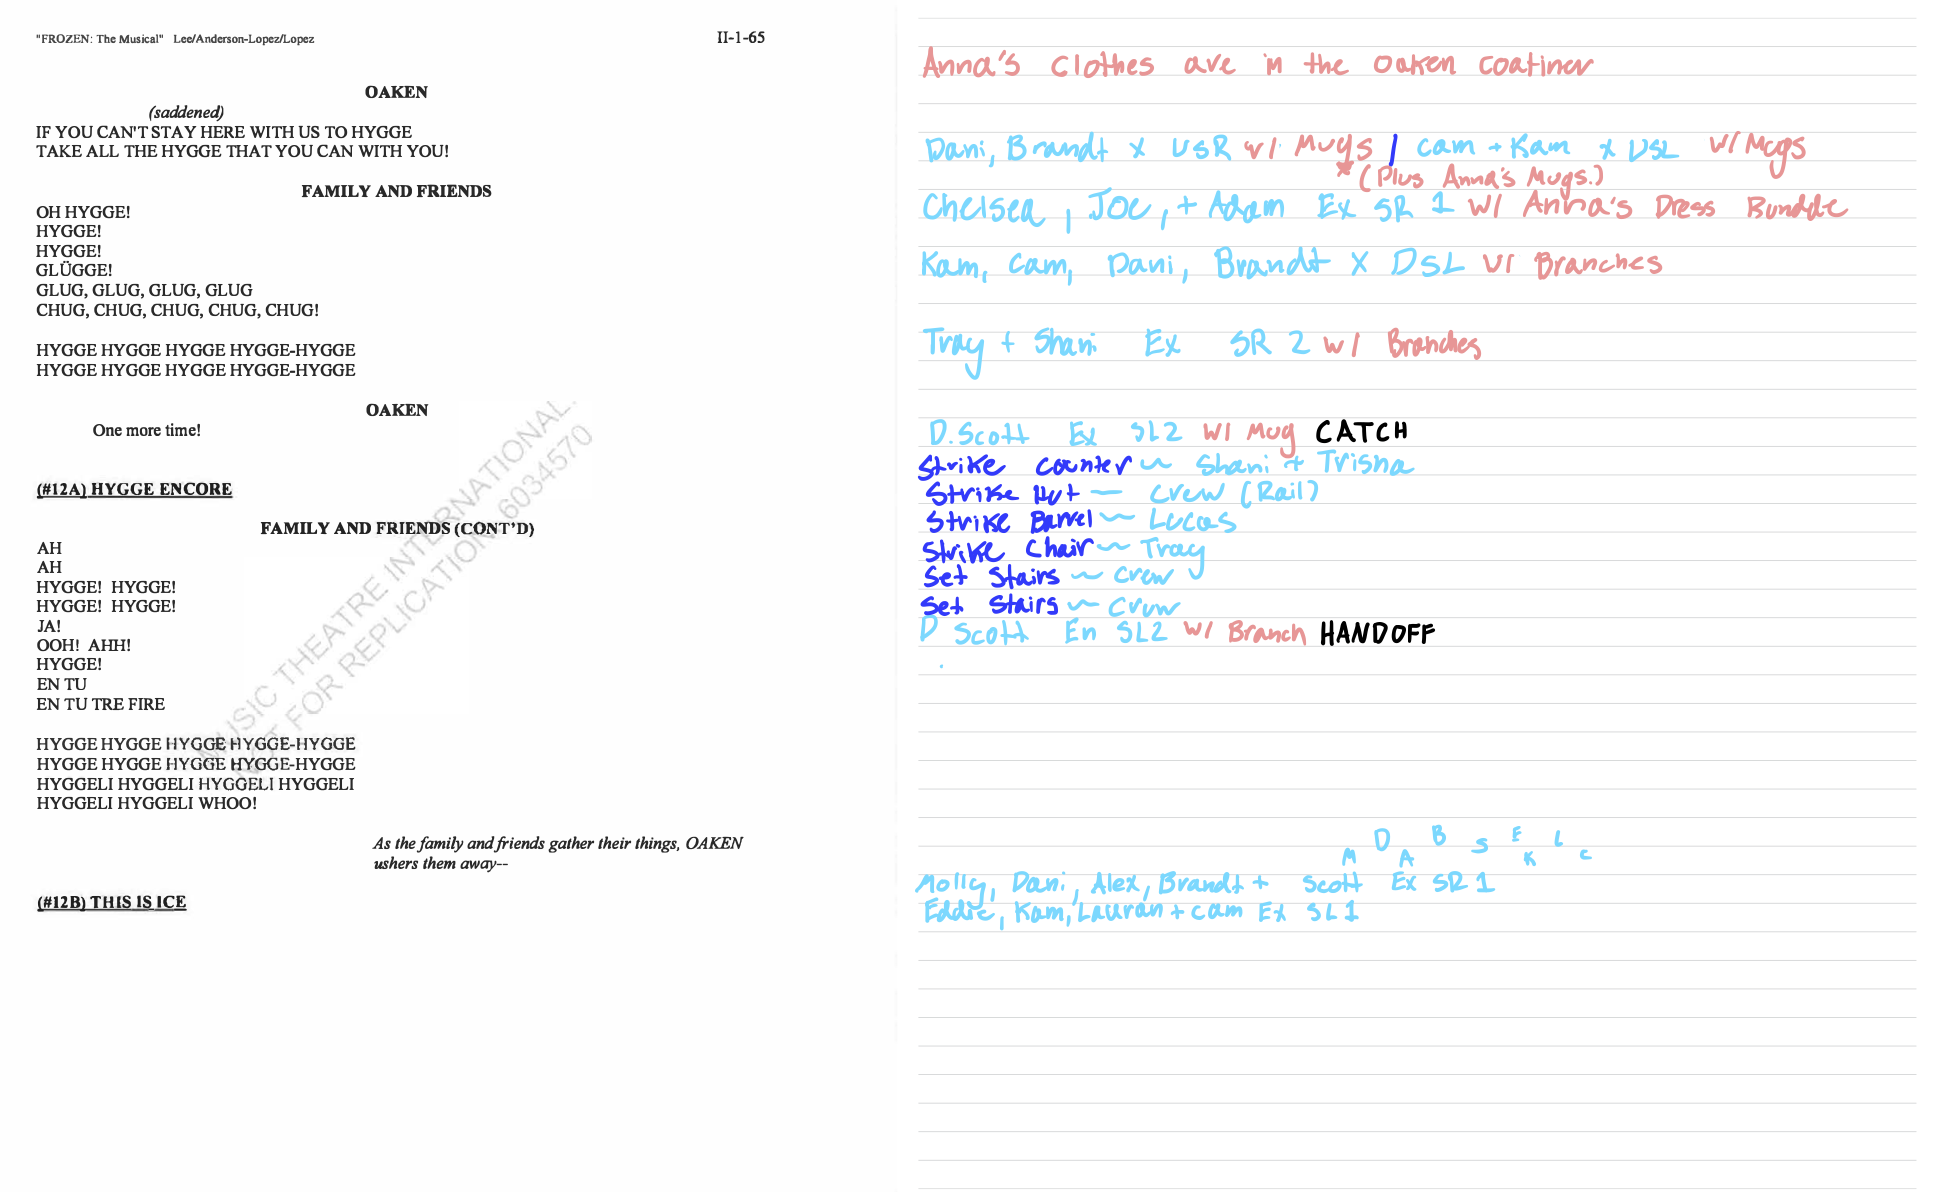 "FROZEN: The Musical" Lee/Anderson-Lopez/Lopez II-1-65
OAKEN
(saddened)
IF YOU CAN'T STAY HERE WITH US TO HYGGE
TAKE ALL THE HYGGE THAT YOU CAN WITH YOU!
FAMILY AND FRIENDS
OH HYGGE!
HYGGE!
HYGGE!
GLÜGGE!
GLUG, GLUG, GLUG, GLUG
CHUG, CHUG, CHUG, CHUG, CHUG!
HYGGE HYGGE HYGGE HYGGE-HYGGE
HYGGE HYGGE HYGGE HYGGE-HYGGE
OAKEN
One more time!
(#12A) HYGGE ENCORE
FAMILY AND FRIENDS (CONT'D)
AH
AH
HYGGE! HYGGE!
HYGGE! HYGGE!
JA!
OOH! AHH!
HYGGE!
EN TU
EN TU TRE FIRE
HYGGE HYGGE HYGGE HYGGE-HYGGE
HYGGE HYGGE HYGGE HYGGE-HYGGE
HYGGELI HYGGELI HYGGELI HYGGELI
HYGGELI HYGGELI WHOO!
As the family and friends gather their things, OAKEN
ushers them away--
(#12B) THIS IS ICE
MUSIC THEATRE INTERNATIONAL.
NOT FOR REPLICATION. 6034570
Anna's clothes are in the Oaken
Dani, Brandt x USR w/ Mugs / Cam + Kam x DSL w/ Mugs
*(Plus Anna's Mugs.)
Chelsea, Joe, + Adam Ex SR 1 w/ Anna's Dress Bundle
Kam, Cam, Dani, Brandt X DSL w/ Branches
Tray + Shani Ex SR 2 w/ Branches
D. Scott Ex SL2 w/ Mug CATCH
Strike Counter ~ Shani + Trisha
Strike Hut ~ Crew (Rail)
Strike Barrel ~ Lucas
Strike Chair ~ Tray
Set Stairs ~ Crew
Set Stairs ~ Crew
D Scott En SL2 w/ Branch HANDOFF
M D A B S E K L C
Molly, Dani, Alex, Brandt + Scott Ex SR 1
Eddie, Kam, Lauran + Cam Ex SL1